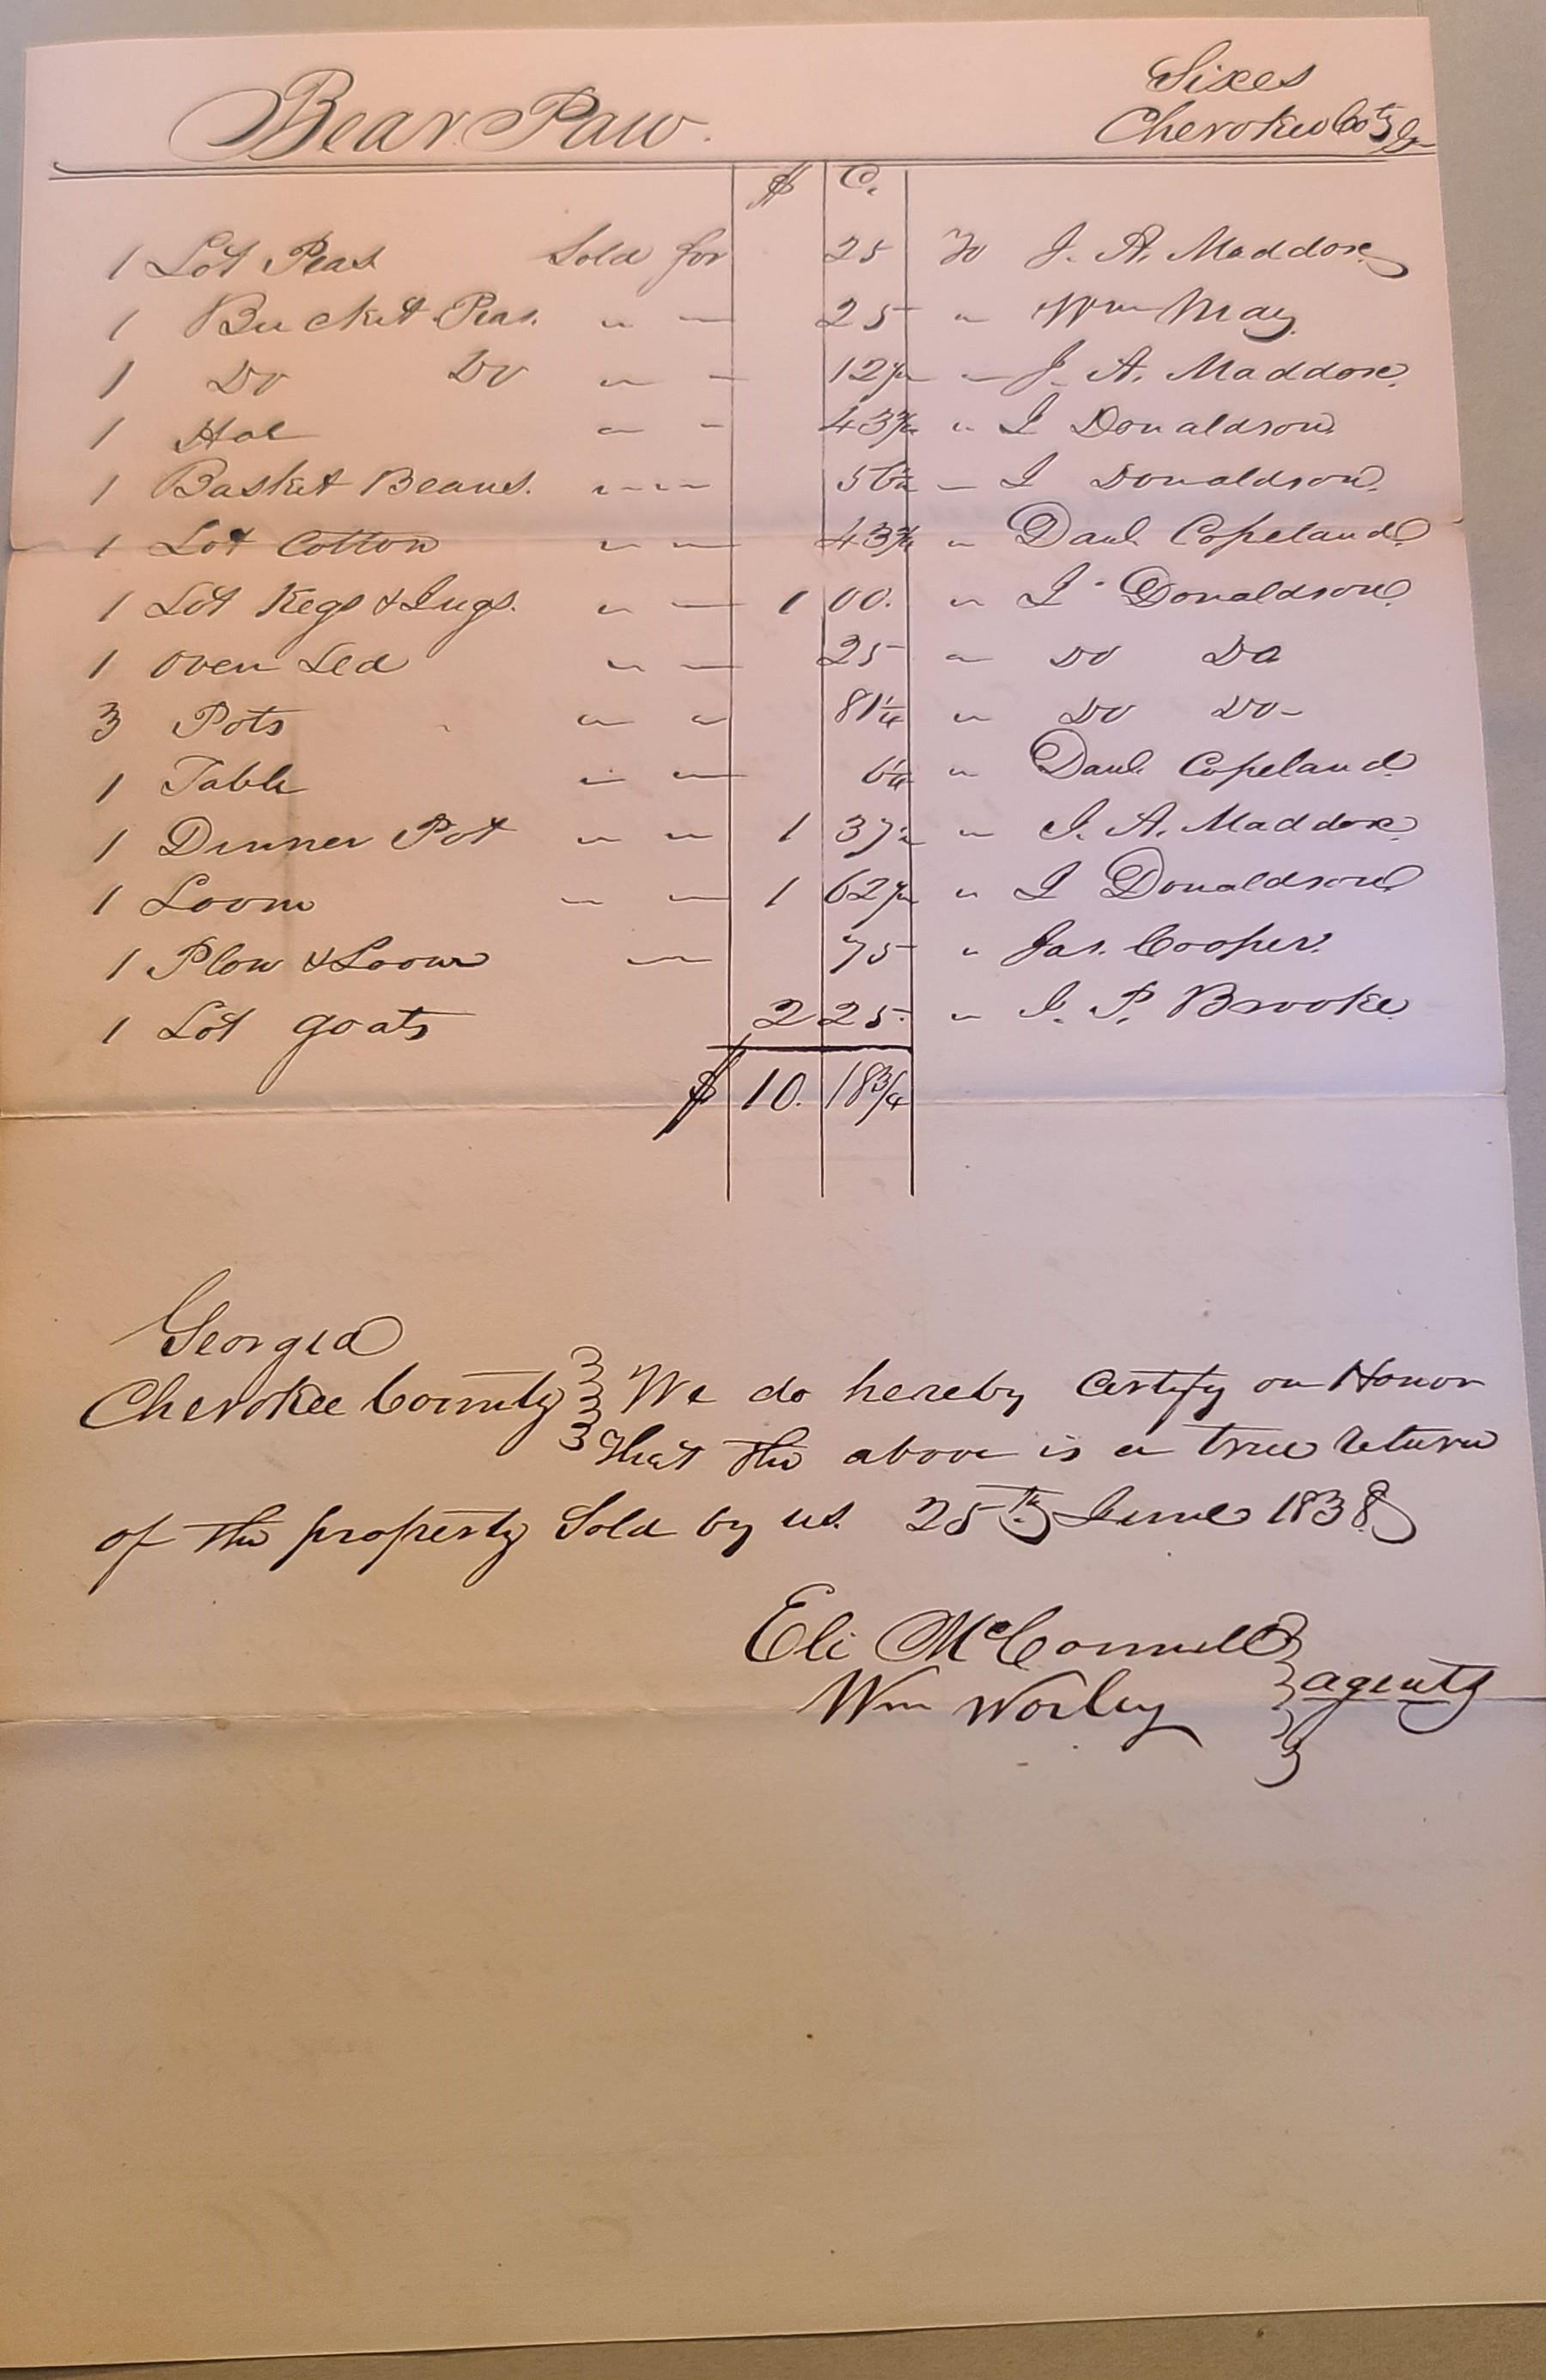 Bear Paw.
Sixes
Cherokee Coty Ga
$ C.
1 Lot Peas Sold for 25 To J. A. Maddox
1 Bucket Peas. " — 25 " Wm May.
1 Do Do " — 12 1/2 " J. A. Maddox.
1 Hoe " - 43 3/4 " I Donaldson.
1 Basket Beans. " -- 56 1/4 — I Donaldson.
1 Lot Cotton " — 43 3/4 " Danl. Copeland.
1 Lot Kegs & Jugs. " — 1 00. " I Donaldson
1 Oven Led " — 25 " Do Do
3 Pots " " 81 1/4 " Do Do-
1 Table " — 6 1/4 " Danl. Copeland.
1 Dinner Pot " " 1 37 1/2 " J. A. Maddox.
1 Loom " — 1 62 1/2 " I Donaldson
1 Plow & Loom — 75 " Jas. Cooper.
1 Lot goats 2 25. " J. P. Brooke
$ 10. 18 3/4
Georgia
Cherokee County } We do hereby Certify on Honor
That the above is a true return
of the property Sold by us. 25th June 1838
Eli McConnell
Wm Worley } agents